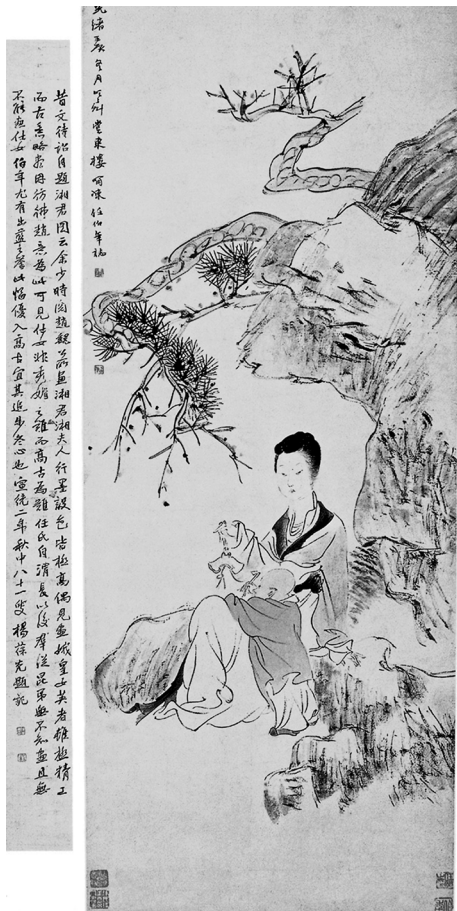 光緒冬月堂東樓寫任伯年稿
昔文待詔自題湘君圖云余少時閱趙魏公所畫湘君湘夫人行墨設色皆極高偶見畫娥皇女英者雖極精工
而古意略盡因彷彿趙意為此可見仕女非秀媚之難而高古為難任氏自渭長以後群從昆弟無不知畫且無
不能畫仕女伯年尤有出藍之譽此幅優入高古宜其追步冬心也宣統二年秋中八十一叟楊葆光題記